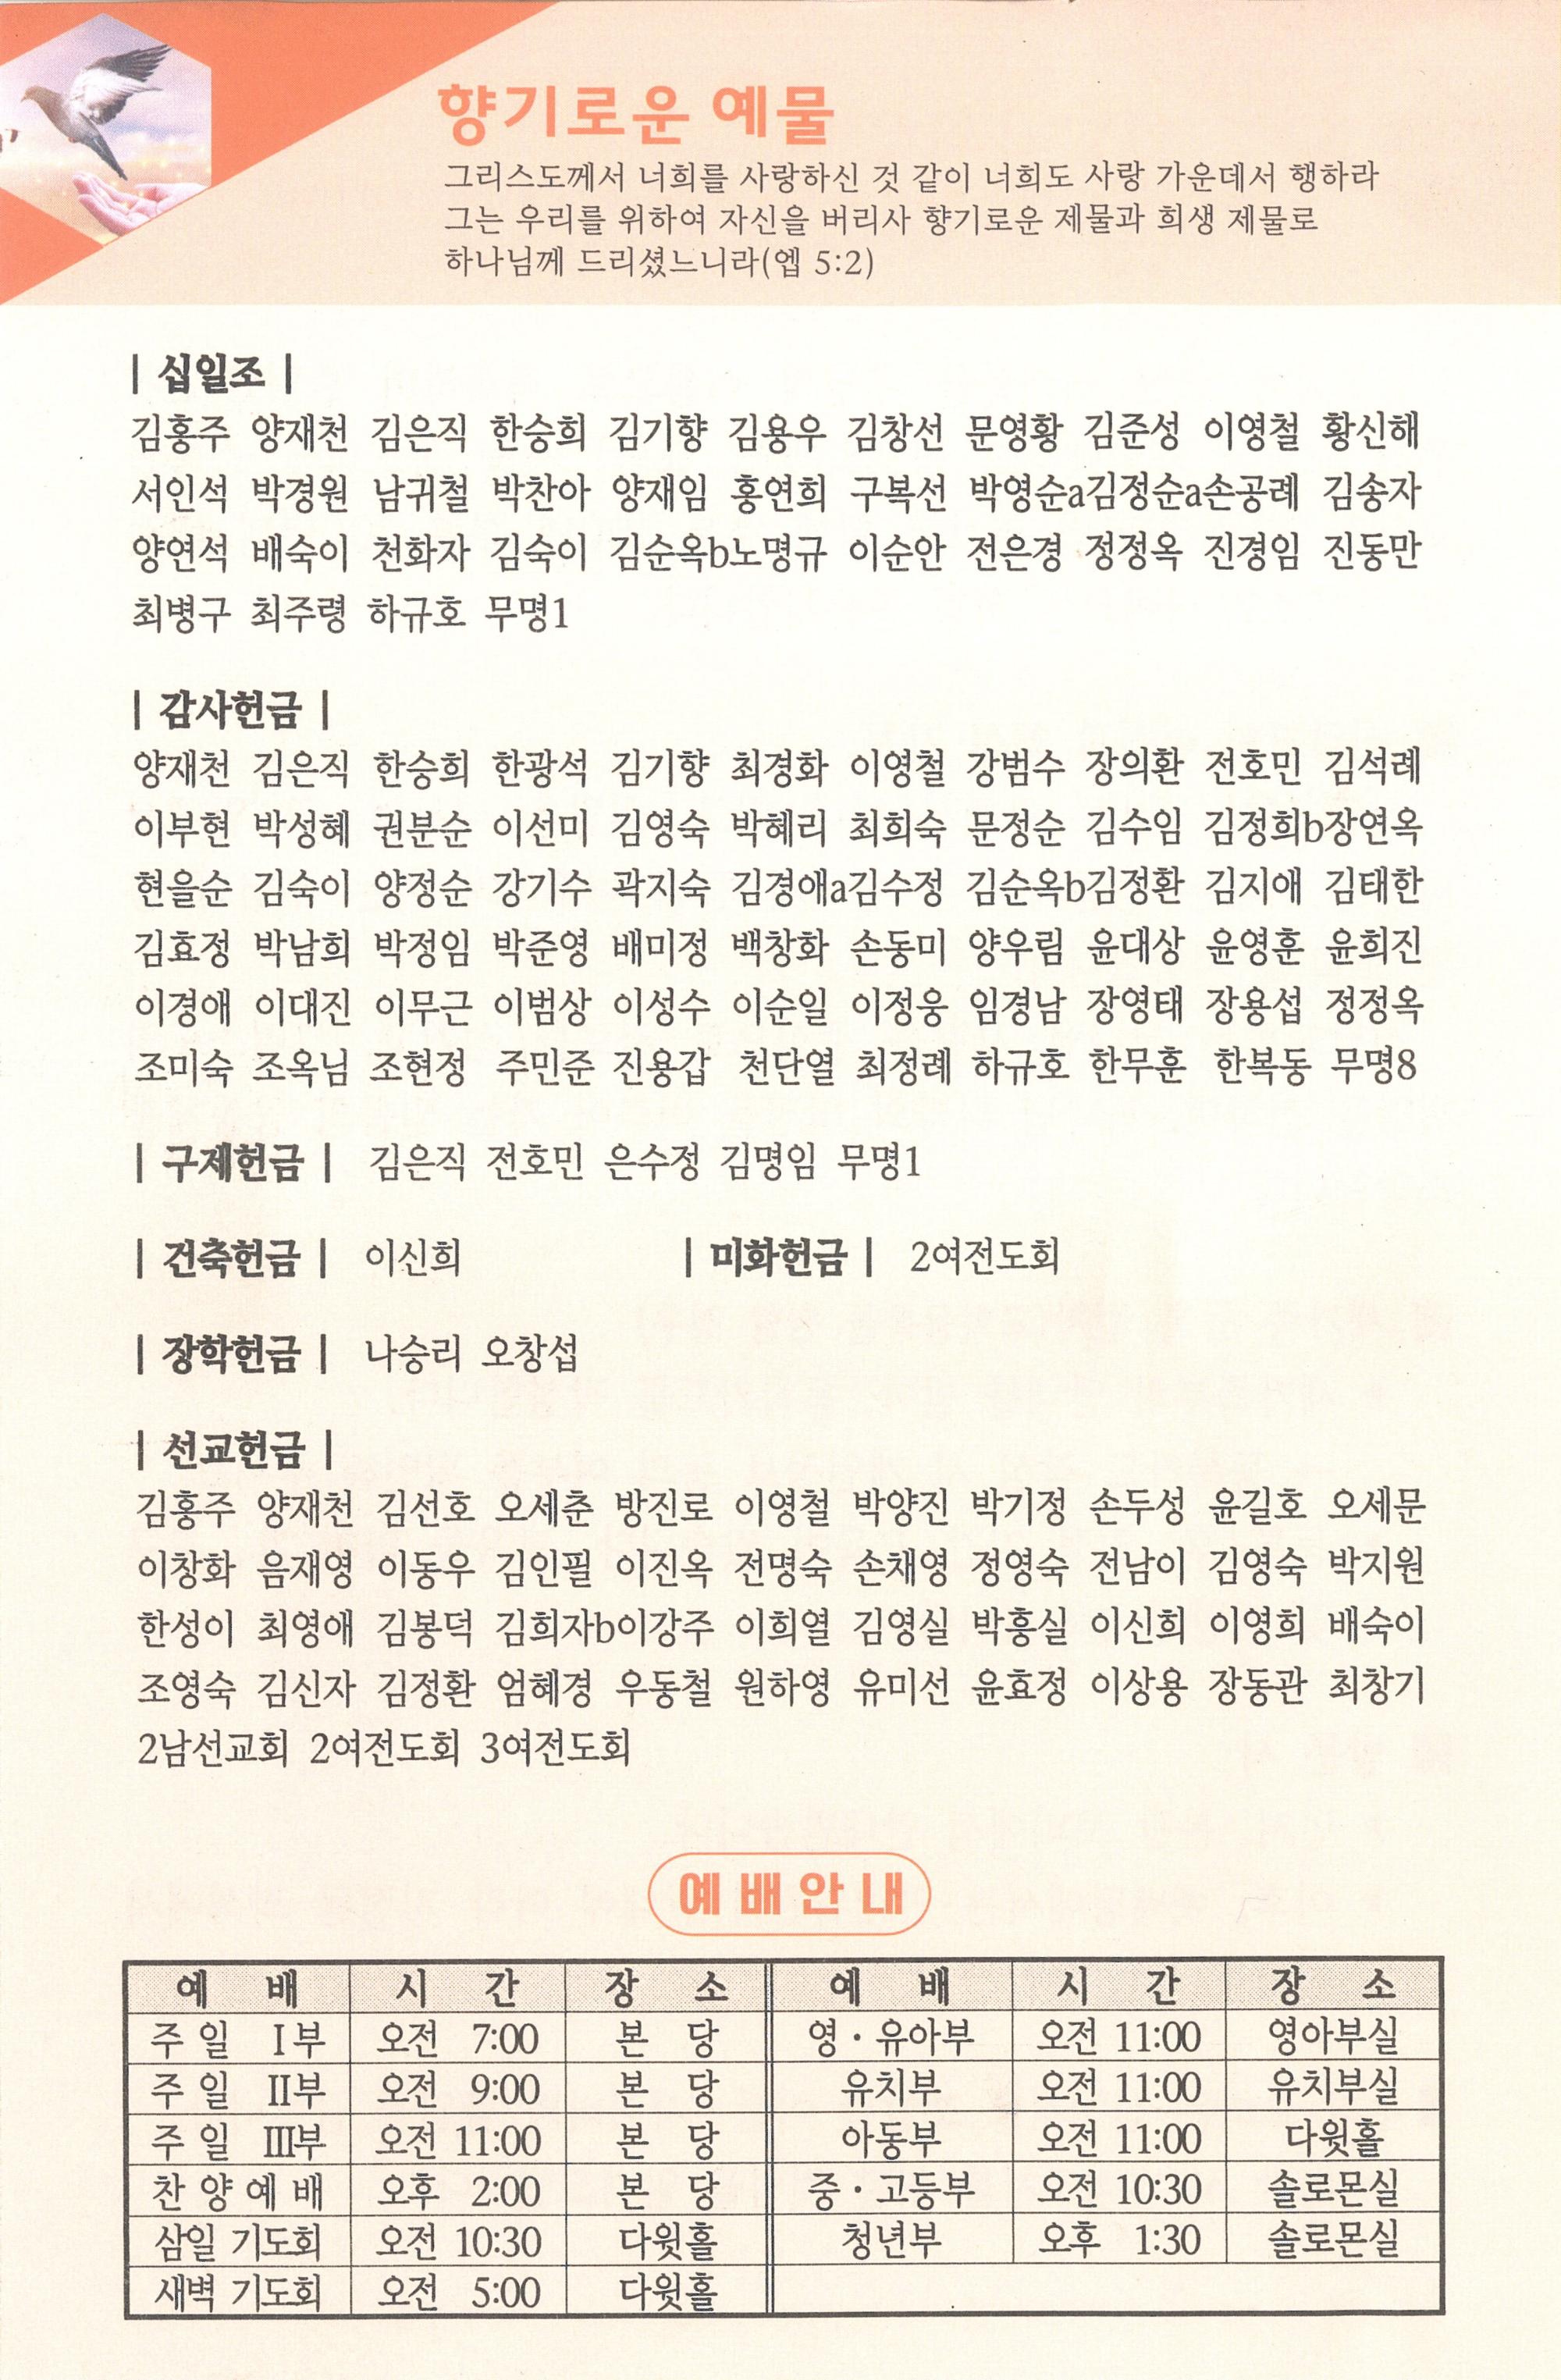 향기로운 예물
그리스도께서 너희를 사랑하신 것 같이 너희도 사랑 가운데서 행하라
그는 우리를 위하여 자신을 버리사 향기로운 제물과 희생 제물로
하나님께 드리셨느니라(엡 5:2)
| 십일조 |
김홍주 양재천 김은직 한승희 김기향 김용우 김창선 문영황 김준성 이영철 황신해
서인석 박경원 남귀철 박찬아 양재임 홍연희 구복선 박영순a김정순a손공례 김송자
양연석 배숙이 천화자 김숙이 김순옥b노명규 이순안 전은경 정정옥 진경임 진동만
최병구 최주령 하규호 무명1
| 감사헌금 |
양재천 김은직 한승희 한광석 김기향 최경화 이영철 강범수 장의환 전호민 김석례
이부현 박성혜 권분순 이선미 김영숙 박혜리 최희숙 문정순 김수임 김정희b장연옥
현을순 김숙이 양정순 강기수 곽지숙 김경애a김수정 김순옥b김정환 김지애 김태한
김효정 박남희 박정임 박준영 배미정 백창화 손동미 양우림 윤대상 윤영훈 윤희진
이경애 이대진 이무근 이범상 이성수 이순일 이정웅 임경남 장영태 장용섭 정정옥
조미숙 조옥님 조현정 주민준 진용갑 천단열 최정례 하규호 한무훈 한복동 무명8
| 구제헌금 | 김은직 전호민 은수정 김명임 무명1
| 건축헌금 | 이신희 | 미화헌금 | 2여전도회
| 장학헌금 | 나승리 오창섭
| 선교헌금 |
김홍주 양재천 김선호 오세춘 방진로 이영철 박양진 박기정 손두성 윤길호 오세문
이창화 음재영 이동우 김인필 이진옥 전명숙 손채영 정영숙 전남이 김영숙 박지원
한성이 최영애 김봉덕 김희자b이강주 이희열 김영실 박흥실 이신희 이영희 배숙이
조영숙 김신자 김정환 엄혜경 우동철 원하영 유미선 윤효정 이상용 장동관 최창기
2남선교회 2여전도회 3여전도회
예배안내
예 배 시 간 장 소 예 배 시 간 장 소
주 일 I부 오전 7:00 본 당 영·유아부 오전 11:00 영아부실
주 일 II부 오전 9:00 본 당 유치부 오전 11:00 유치부실
주 일 III부 오전 11:00 본 당 아동부 오전 11:00 다윗홀
찬 양 예 배 오후 2:00 본 당 중·고등부 오전 10:30 솔로몬실
삼일 기도회 오전 10:30 다윗홀 청년부 오후 1:30 솔로몬실
새벽 기도회 오전 5:00 다윗홀